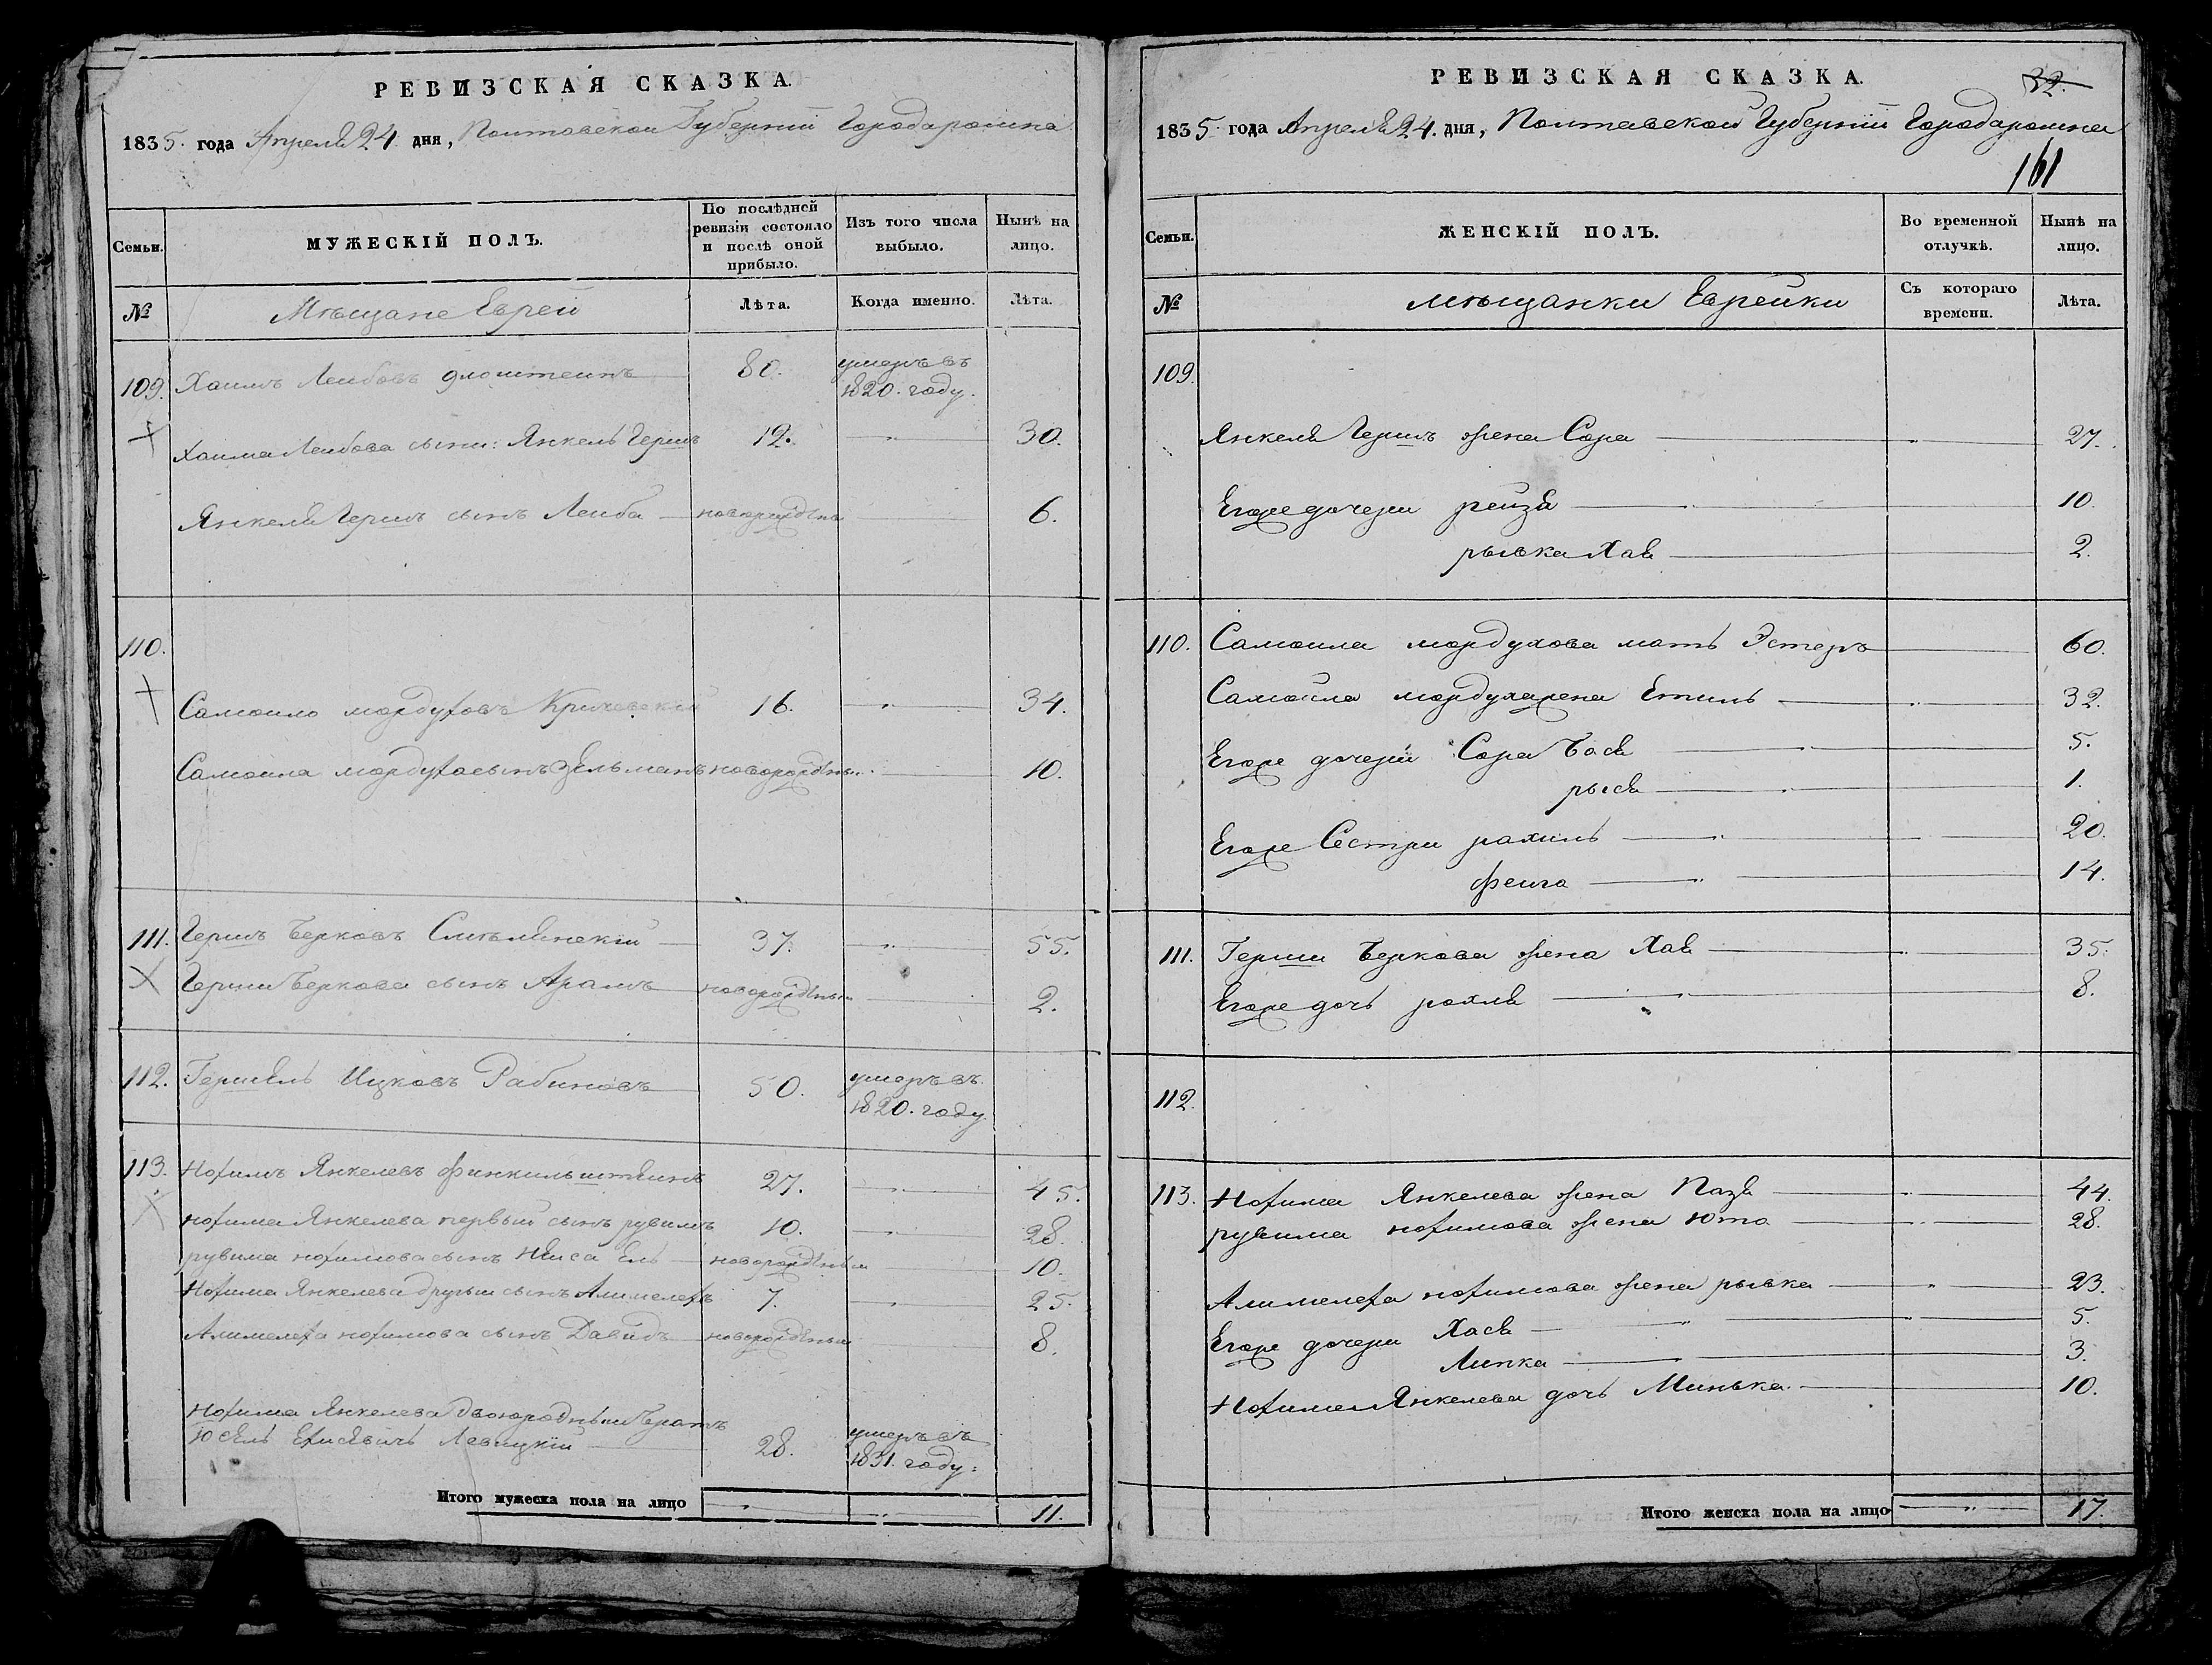 РЕВИЗСКАЯ СКАЗКА.
1835. года Апреля 24. дня, Полтавской Губернии Города ромна
Семьи.
МУЖЕСКІЙ ПОЛЪ.
По послѣдней ревизіи состояло и послѣ оной прибыло.
Изъ того числа выбыло.
Нынѣ на лицо.
№
Мѣщане Евреи
Лѣта.
Когда именно.
Лѣта.
109. Хаимъ Леибовъ 80. умеръ въ 1820. году.
Хаима Леибова сыни: Янкель Гершъ 12. " 30.
Янкеля Гершъ сынъ Леиба новорожденъ 6.
110.
Самоило мордуховъ Кричевскій 16. " 34.
Самоила мордуха сынъ Зельманъ новорожденъ 10.
111. Гершъ Берковъ Смѣлянскіи 37. " 55.
Герши Беркова сынъ Арамъ новорожденыи 2.
112. Гершель Ицковъ Рабиновъ 50. умеръ въ 1820. году.
113. Нохимъ Янкелевъ Финкильштеинъ 27. " 45.
нохима Янкелева первыи сынъ рувимъ 10. " 28.
рувима нохимова сынъ Ель новорожденыи 10.
Нохима Янкелева другии сынъ Алимелехъ 7. " 25.
Алимелеха нохимова сынъ Давидъ новорожденыи 8.
Нохима Янкелева двоюродныи братъ
Юсель Левицкіи 28. умеръ въ 1831. году.
Итого мужеска пола на лицо " " 11.
РЕВИЗСКАЯ СКАЗКА.
32.
1835. года Апреля 24. дня, Полтавской Губерніи Города ромна
161
Семьи.
ЖЕНСКІЙ ПОЛЪ.
Во временной отлучкѣ.
Нынѣ на лицо.
№
Мѣщанки Еврейки
Съ котораго времени.
Лѣта.
109.
Янкеля Гершъ жена Сора " 27.
Егоже дочери рейзя " 10.
рывка Хая 2.
110. Самоила мордухова мать Эстеръ 60.
Самойла мордуха жена Етиль " 32.
Егоже дочерй Сора Бася " 5.
рыся " 1.
Егоже Сестри рахиль " " 20.
феига " 14.
111. Герши Беркова жена Хая " 35.
Егоже дочь рохля " 8.
112.
113. Нохима Янкелева жена Пазя " 44.
рувима нохимова жена Юта " 28.
Алимелеха нохимова жена рывка " 23.
Егоже дочери Хася " 5.
Липка " 3.
Нохима Янкелева дочь Минька. 10.
Итого женска пола на лицо " 17.